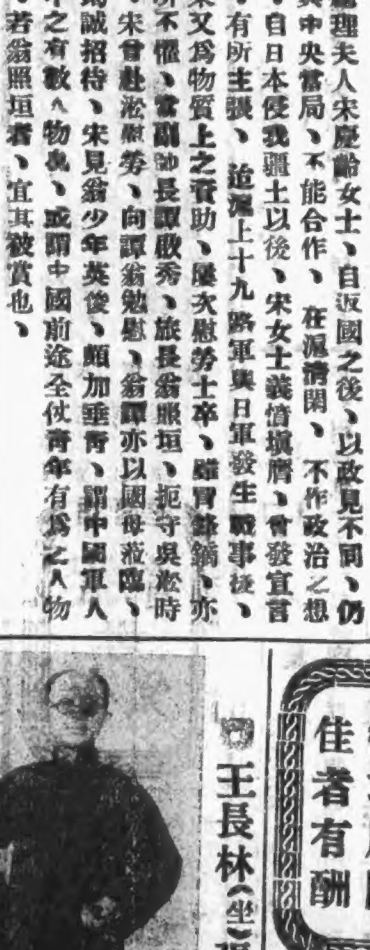 總理夫人宋慶齡女士、自返國之後、以政見不同、仍
與中央當局、不能合作、在滬清閑、不作政治之想
、自日本侵我疆土以後、宋女士義憤塡膺、曾發宣言
、有所主張、迨滬上十九路軍與日軍發生戰事後、
宋又爲物質上之資助、屢次慰勞士卒、雖冒鋒鏑、亦
所不懼、當副師長譚啟秀、旅長翁照垣、扼守吳淞時
、宋曾赴淞慰勞、向譚翁勉慰、翁譚亦以國母蒞臨、
誠招待、宋見翁少年英俊、頗加垂靑、謂中國軍人
中之有數人物也、或謂中國前途全仗靑年有爲之人物
、若翁照垣者、宜其被賞也、
佳者有酬
王長林(坐)